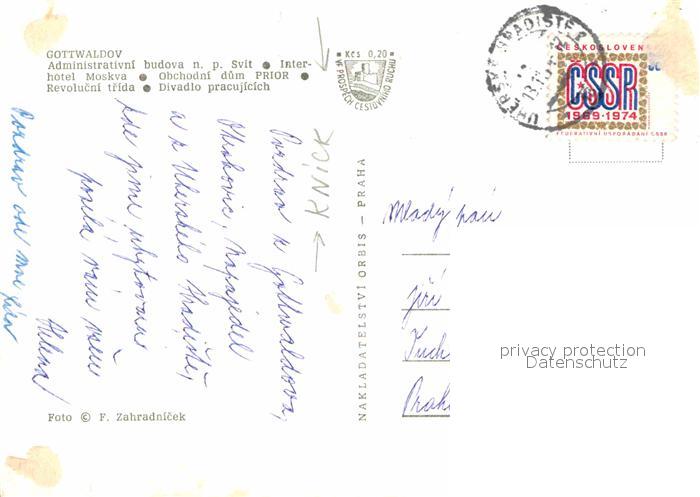 GOTTWALDOV
Administrativní budova n. p. Svit ● Inter-
hotel Moskva ● Obchodní dům PRIOR ●
Revoluční třída ● Divadlo pracujících
Kčs 0,20
VE PROSPĚCH CESTOVNÍHO RUCHU
UHERSKÉ HRADIŠTĚ
ČESKOSLOVEN
ČSSR
1969-1974
FEDERATIVNÍ USPOŘÁDÁNÍ ČSSR
→ KNÍŽK
Pozdrav z Gottwaldova,
Otrokovic, Napajedel
a z Uherského Hradiště,
kde jsme ubytováni
posílá vám všem
Helena
Pozdrav ode mne
NAKLADATELSTVÍ ORBIS – PRAHA
Mladý pán
Jiří
Tuch
Prah
privacy protection
Datenschutz
Foto © F. Zahradníček